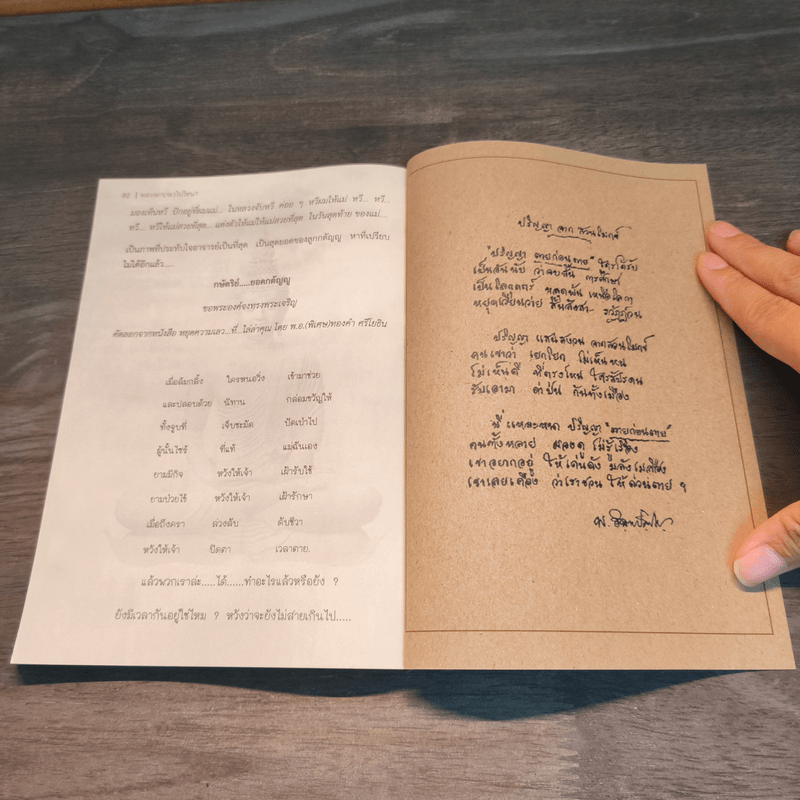 92 |
มองเห็นหวี ปักอยู่ที่ผมแม่... ในหลวงจับหวี ค่อย ๆ หวีผมให้แม่ หวี... หวี...
หวี... หวีให้แม่สวยที่สุด... แต่งตัวให้แม่ให้แม่สวยที่สุด ในวันสุดท้าย ของแม่...
เป็นภาพที่ประทับใจอาจารย์เป็นที่สุด เป็นสุดยอดของลูกกตัญญู หาที่เปรียบ
ไม่ได้อีกแล้ว....
กษัตริย์.....ยอดกตัญญู
ขอพระองค์จงทรงพระเจริญ
คัดลอกจากหนังสือ หยุดความเลว...ที่...ไล่ล่าคุณ โดย พ.อ.(พิเศษ)ทองคำ ศรีโยธิน
เมื่อล้มกลิ้ง ใครหนอวิ่ง เข้ามาช่วย
และปลอบด้วย นิทาน กล่อมขวัญให้
ทั้งจูบที่ เจ็บชะมัด ปัดเป่าไป
ผู้นั้นไซร้ ที่แท้ แม่ฉันเอง
ยามมีกิจ หวังให้เจ้า เฝ้ารับใช้
ยามป่วยไข้ หวังให้เจ้า เฝ้ารักษา
เมื่อถึงครา ล่วงลับ ดับชีวา
หวังให้เจ้า ปิดตา เวลาตาย.
แล้วพวกเราล่ะ.....ได้......ทำอะไรแล้วหรือยัง ?
ยังมีเวลากันอยู่ใช่ไหม ? หวังว่าจะยังไม่สายเกินไป.....
ปริญญา จาก สวนโมกข์
"ปริญญา ตายก่อนตาย" ใครได้รับ
เป็นอันนับ ว่าจบสิ้น การศึกษา
เป็นโลกุตตร์ หลุดพ้น เหนือโลกา
หยุดเวียนว่าย สิ้นสังสา- รวัฏฏ์วน
ปริญญา แสนสงวน จากสวนโมกข์
คนเขาว่า เยกโยก ไม่เห็นหน
ไม่เห็นดี ที่ตรงไหน ใครสัปดน
รับเอามา ด่าป่น กันทั้งเมือง
นี่ แหละหนา ปริญญา "ตายก่อนตาย"
คนทั้งหลาย มองดู ไม่รู้เรื่อง
เขาอยากอยู่ ให้เด่นดัง มลังเมลือง
เขาเลยเคือง ว่าเราชวน ให้ด่วนตาย ฯ
พ. อินทปัญโญ